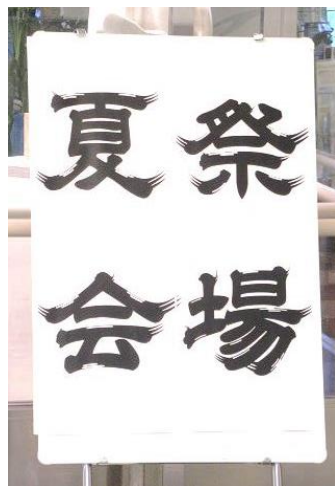 夏祭
会場